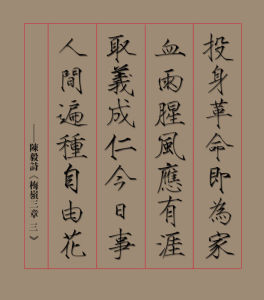 投身革命即為家
血雨腥風應有涯
取義成仁今日事
人間遍種自由花
——陳毅詩《梅嶺三章 三》